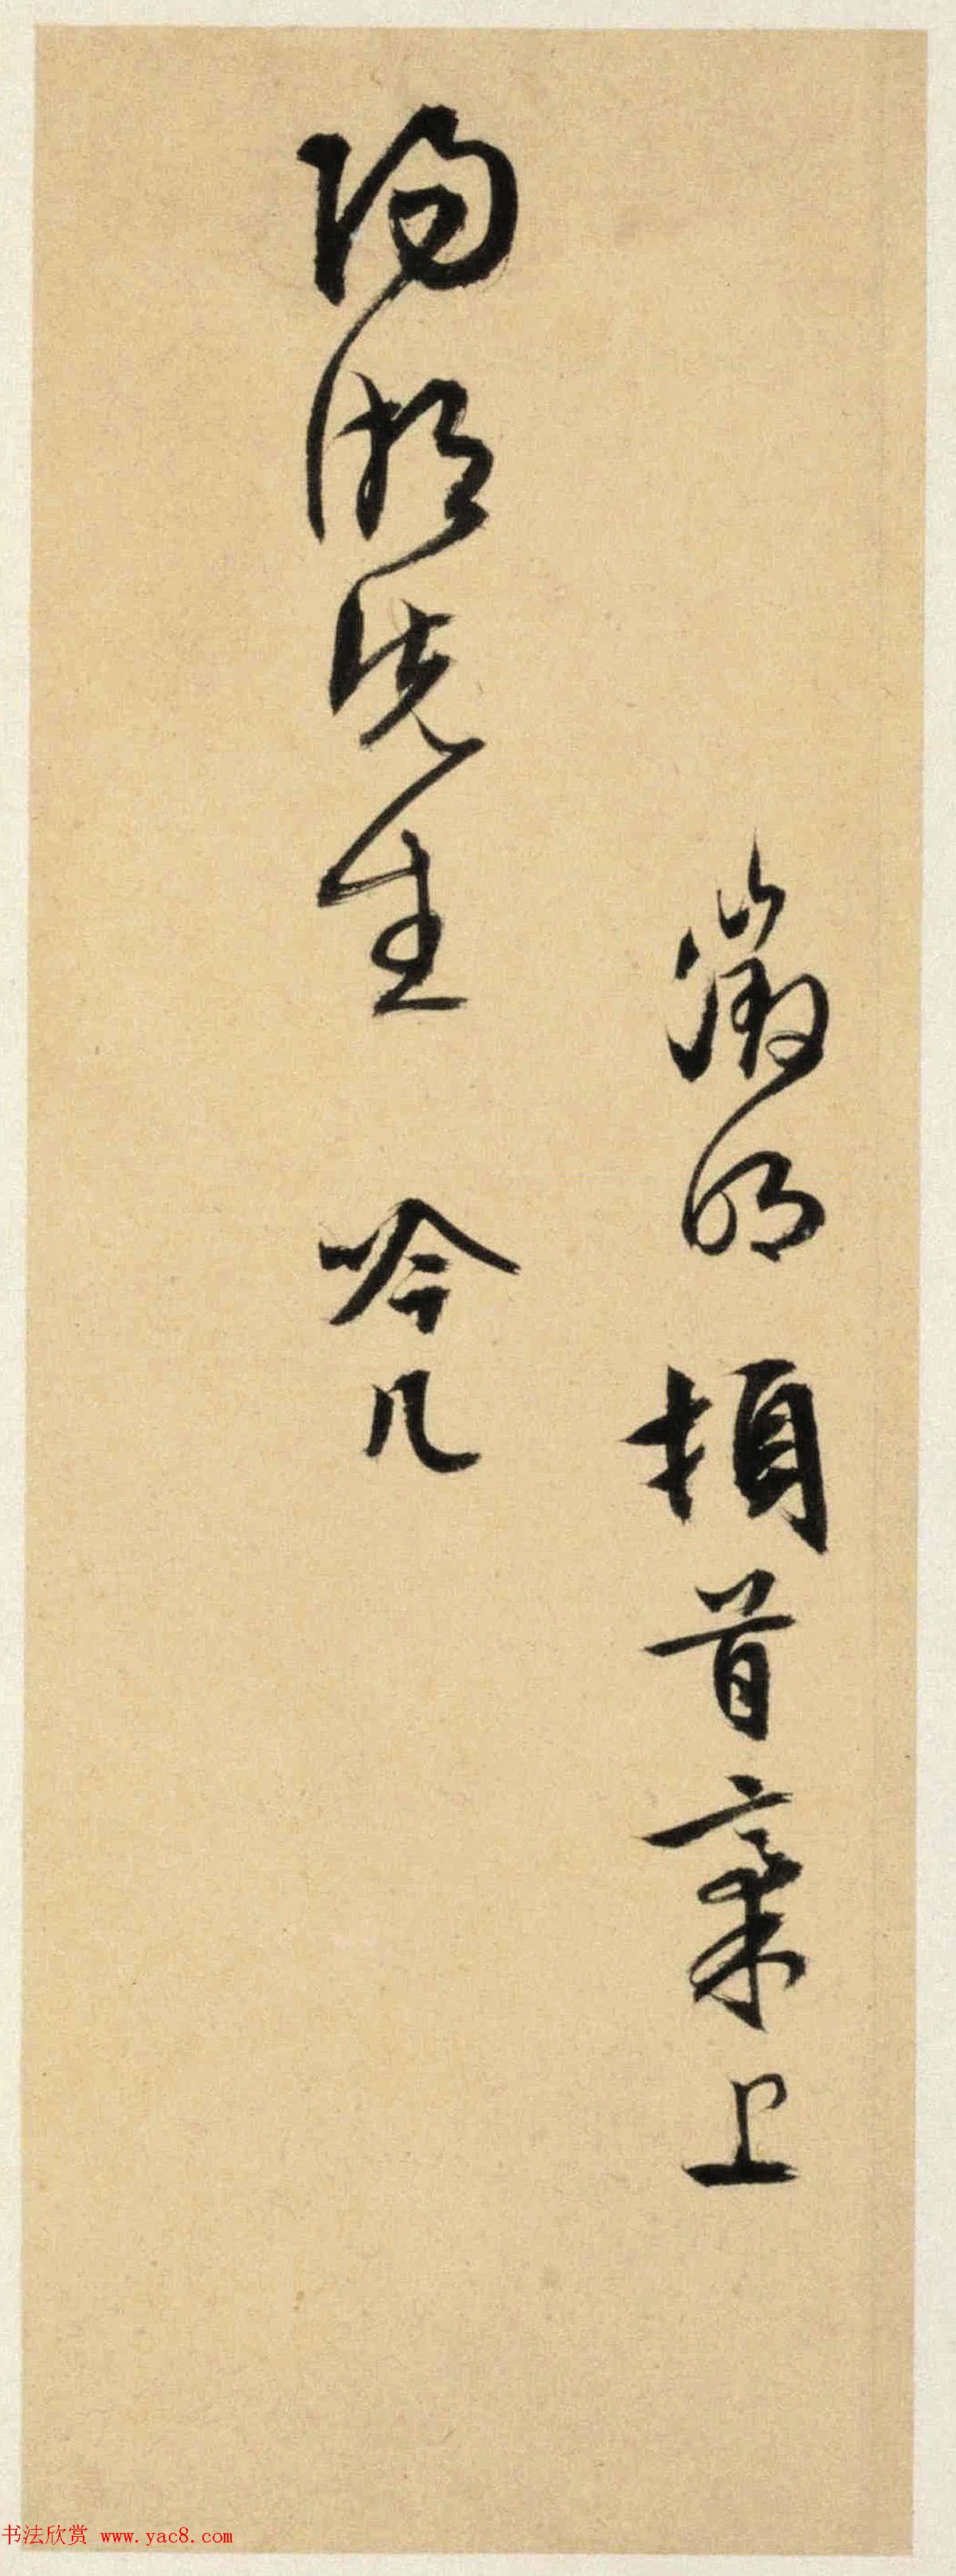 徵明頓首稾上
陽湖先生 吟几
书法欣赏 www.yac8.com